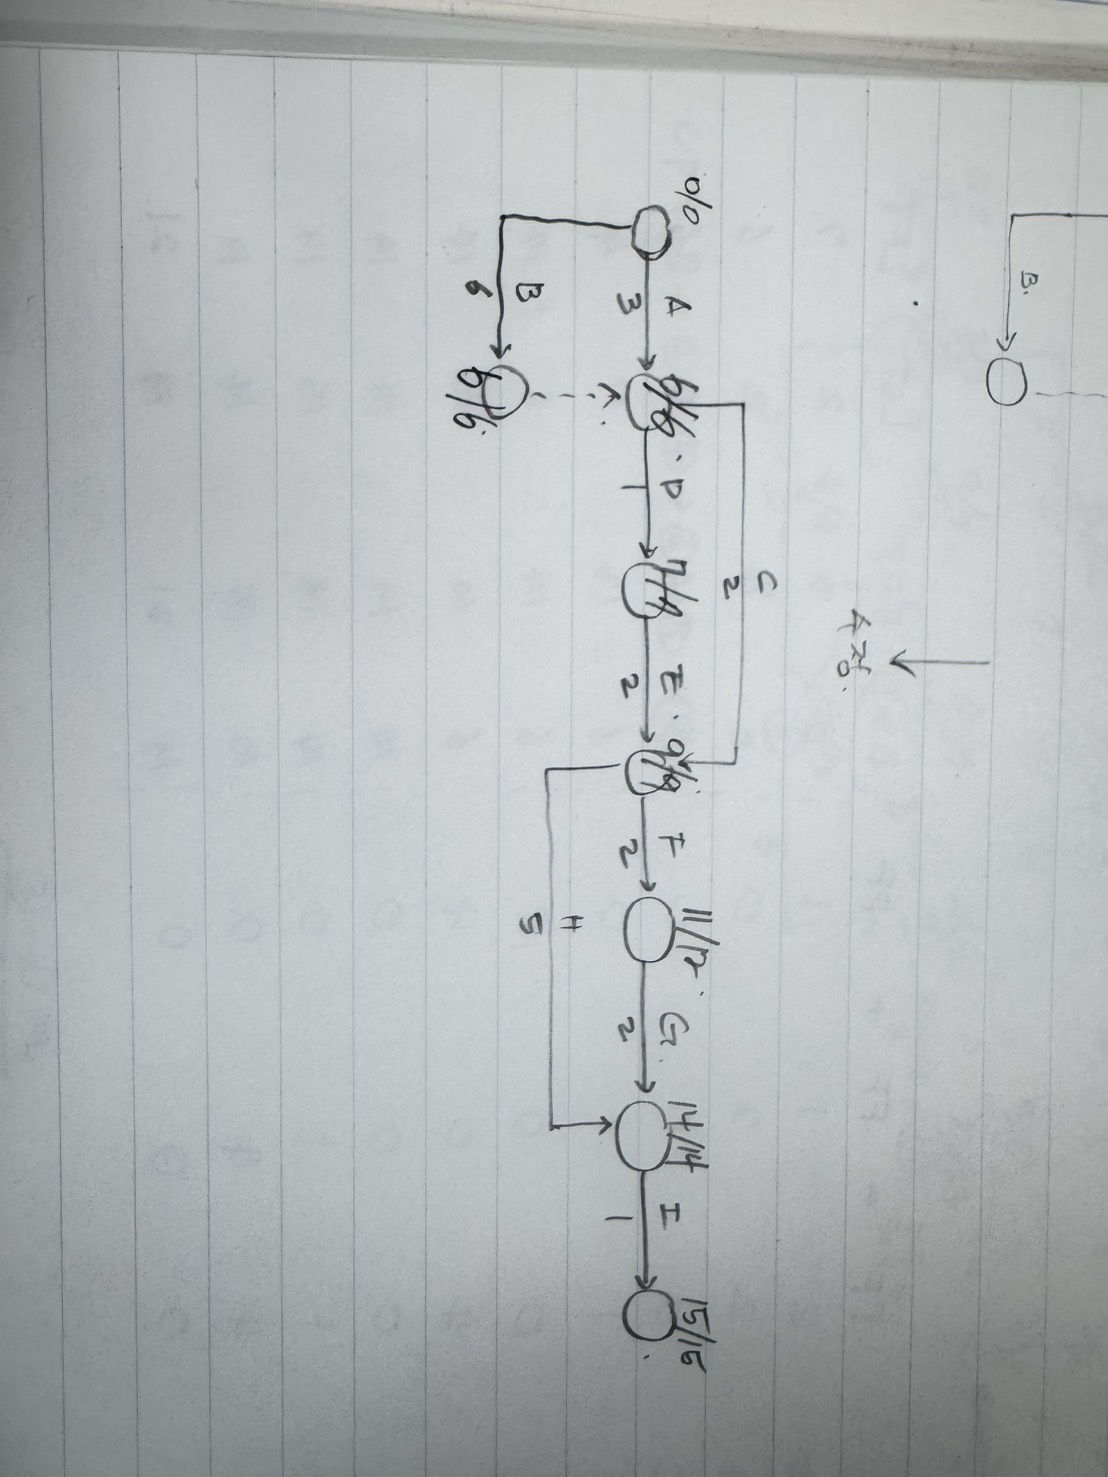 B.
수정.
C
2
0/0
A
3
6/6
D
1
7/7
E.
2
9/9.
F
2
11/12.
G.
2
14/14
I
1
15/15
B
6
6/6.
H
5